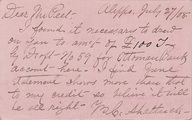 Dear Mr Peet  Aleppo, July 27/05
I found it necessary to draw
on you for am't of £100 T
by Draft No 59 for Ottoman Bank
account here. I think June
statement shows more than that
to my credit so believe it will
be all right. M. C. Shattuck